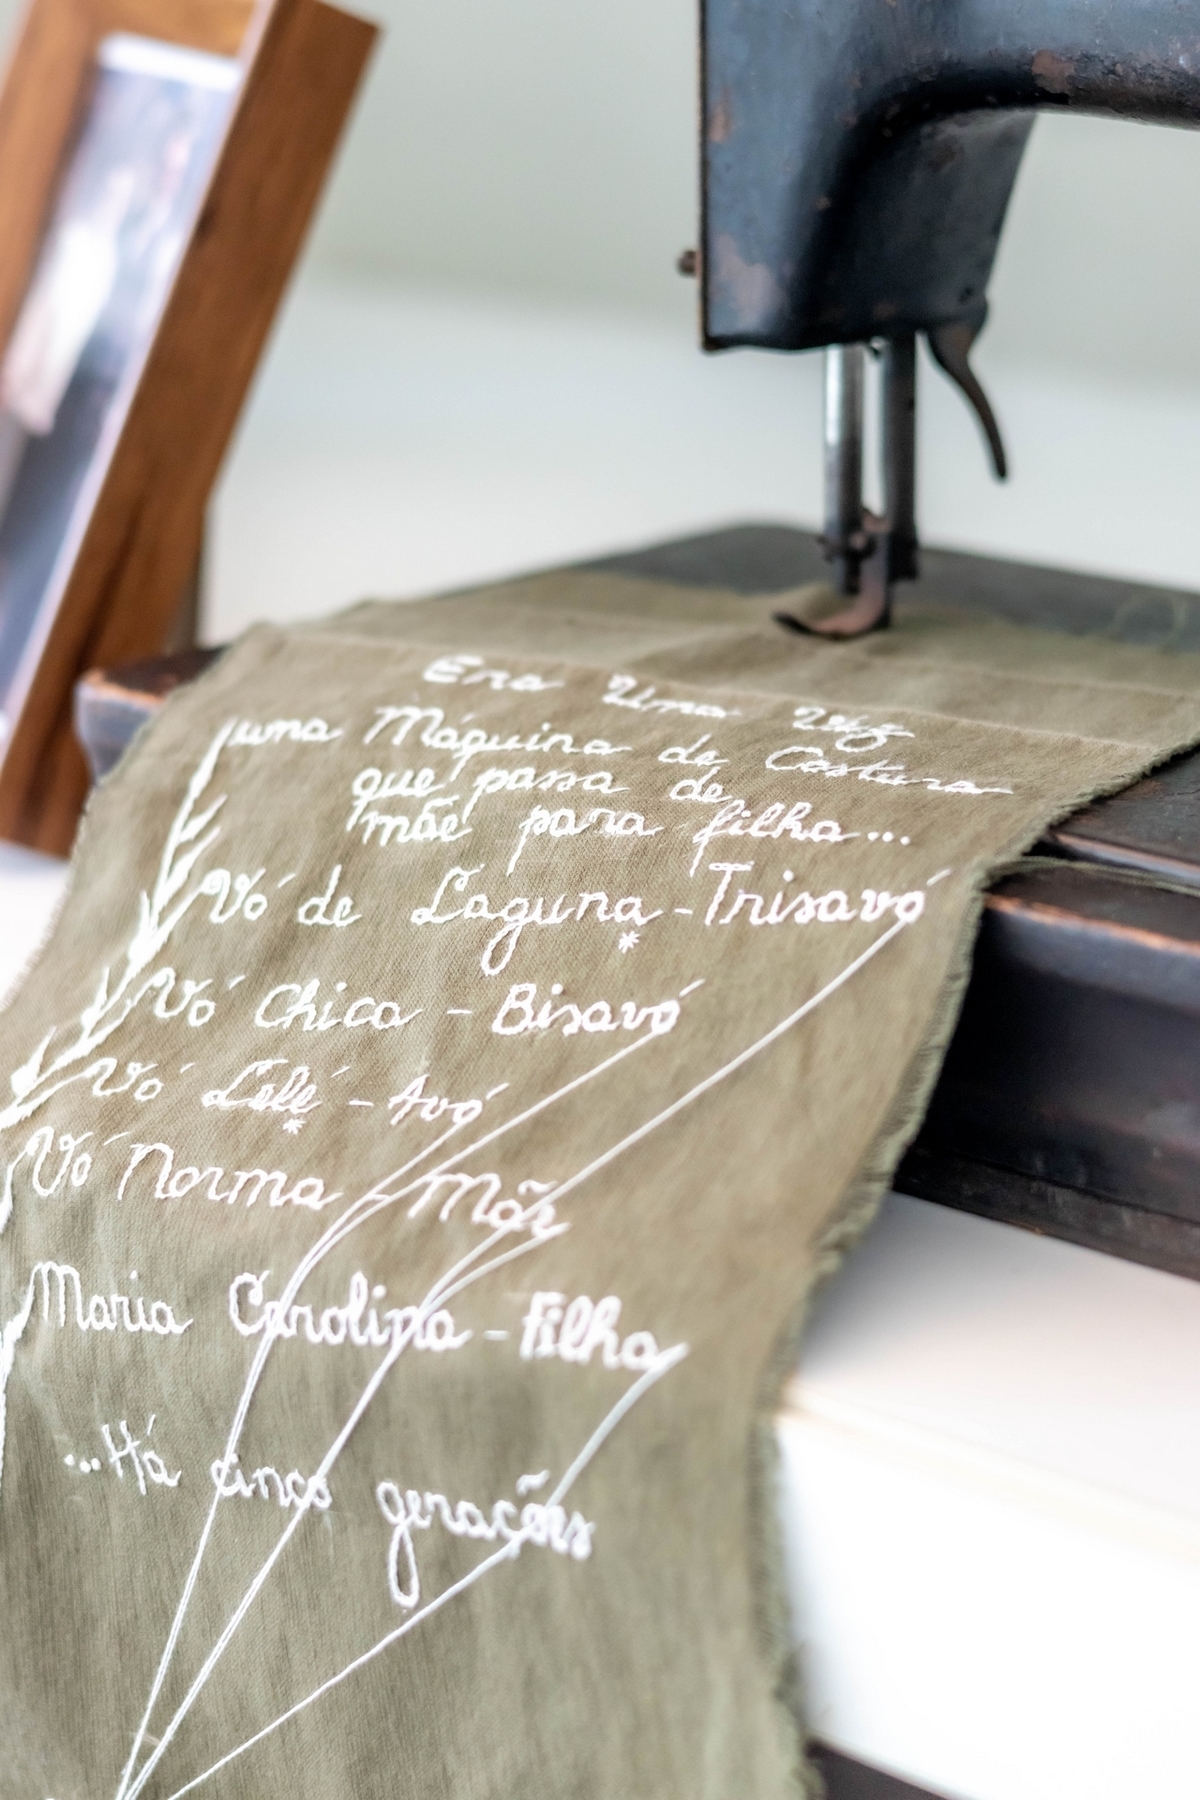 Era Uma Vez
uma Máquina de Costura
que passa de
mãe para filha...
Vó de Laguna - Trisavó
Vó Chica - Bisavó
Vó Lelé - Avó
Vó Norma - Mãe
Maria Carolina - Filha
...Há cinco gerações